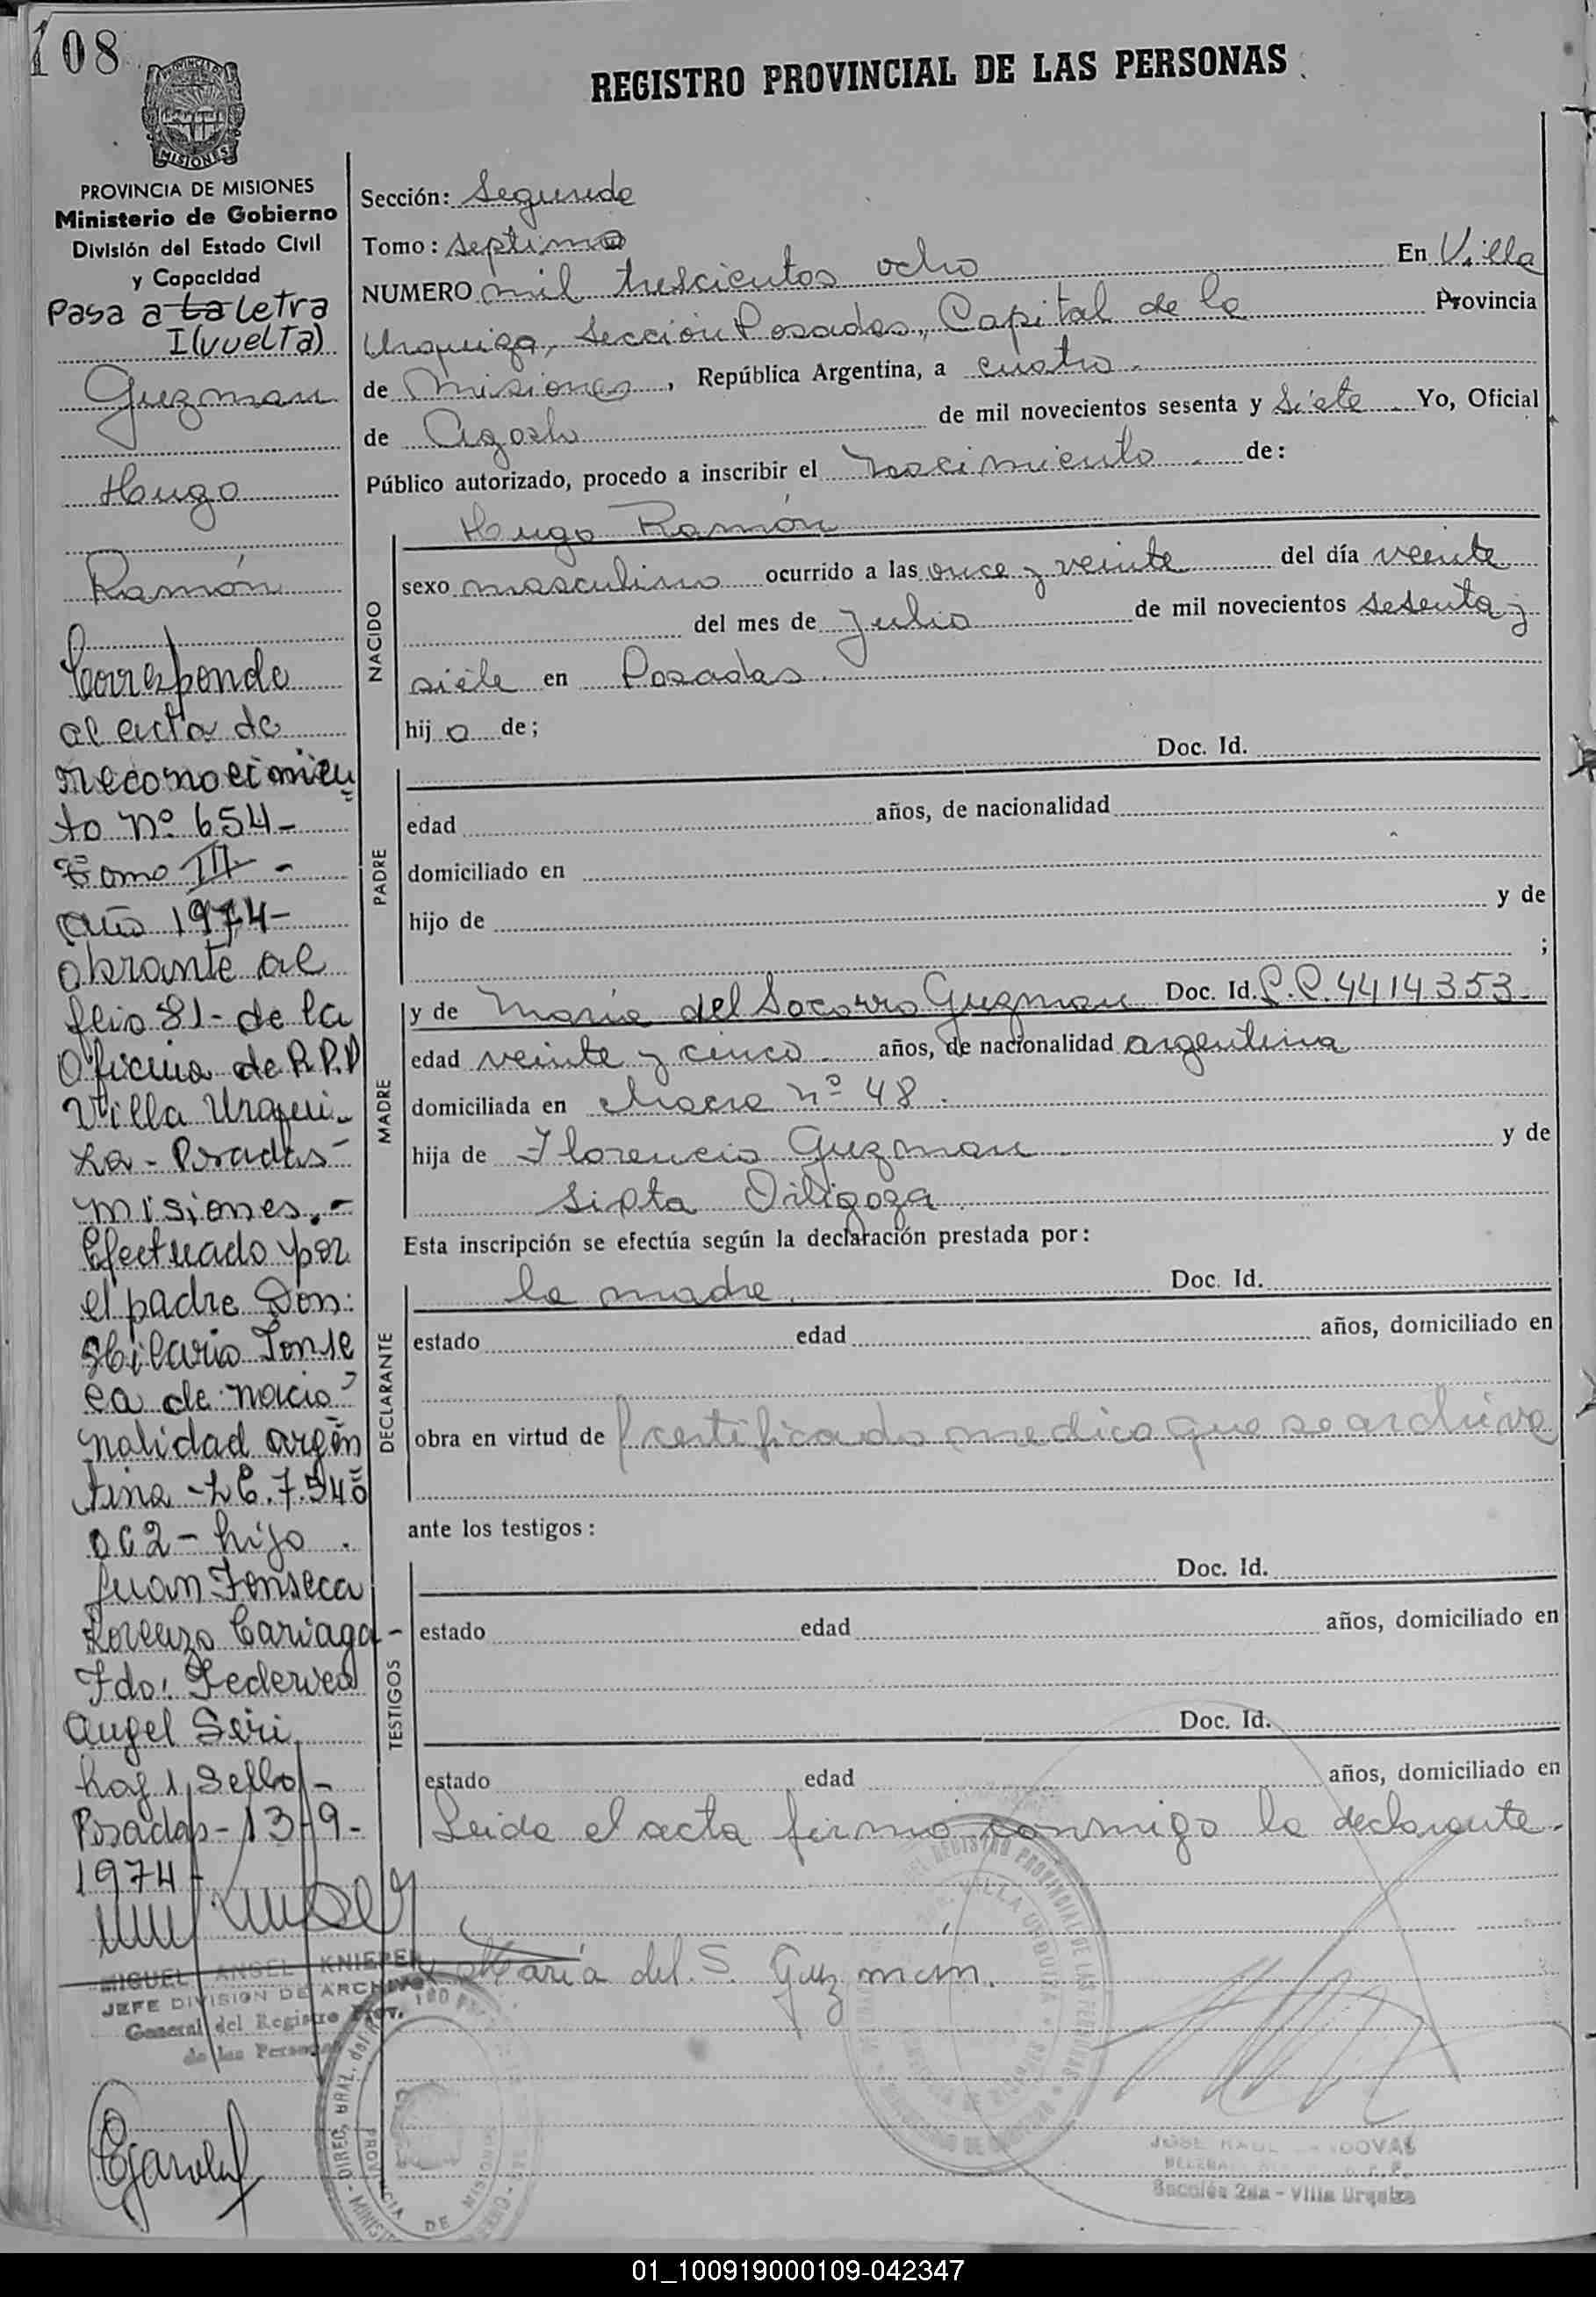 108
REGISTRO PROVINCIAL DE LAS PERSONAS
MISIONES
PROVINCIA DE MISIONES
Ministerio de Gobierno
División del Estado Civil
y Capacidad
Pasa a La Letra
I (vuelta)
Guzman
Hugo
Ramón
Corresponde
al acta de
reconocimien
to nº 654-
Tomo III -
Año 1974-
obrante al
folio 81- de la
Oficina de R.P.P
Villa Urqui-
za - Posadas-
Misiones.-
Efectuado por
el padre Don:
Hilario Fonse
ca de nacio
nalidad argen
tina - L.E. 7.546
062 - hijo
Juan Fonseca
Lorenza Cariaga-
Fdo: Federico
Angel Seri
hay 1 Sello -
Posadas - 13-9-
1974-
MIGUEL ANGEL KNIEPER
JEFE DIVISION DE ARCHIVO
General del Registro Prov.
de las Personas
Sección: Segunda
Tomo: septimo
NUMERO mil trescientos ocho En Villa
Urquiza, Sección Posadas, Capital de la Provincia
de Misiones, República Argentina, a cuatro
de Agosto de mil novecientos sesenta y Siete. Yo, Oficial
Público autorizado, procedo a inscribir el nacimiento de:
NACIDO
Hugo Ramón
sexo masculino ocurrido a las once y veinte del día veinte
del mes de Julio de mil novecientos sesenta y
siete en Posadas
hij o de;
PADRE
Doc. Id.
edad años, de nacionalidad
domiciliado en
hijo de y de
;
MADRE
y de Maria del Socorro Guzman Doc. Id. C.C. 4414353-
edad veinte y cinco años, de nacionalidad argentina
domiciliada en chacra nº 48
hija de Florencio Guzman y de
Sixta
Esta inscripción se efectúa según la declaración prestada por:
DECLARANTE
la madre Doc. Id.
estado edad años, domiciliado en
obra en virtud de certificado medico que se archiva
ante los testigos:
TESTIGOS
Doc. Id.
estado edad años, domiciliado en
Doc. Id.
estado edad años, domiciliado en
Leida el acta firmó conmigo la declarante.
María del. S. Guzman.
Sección 2da - Villa Urquiza
01_100919000109-042347